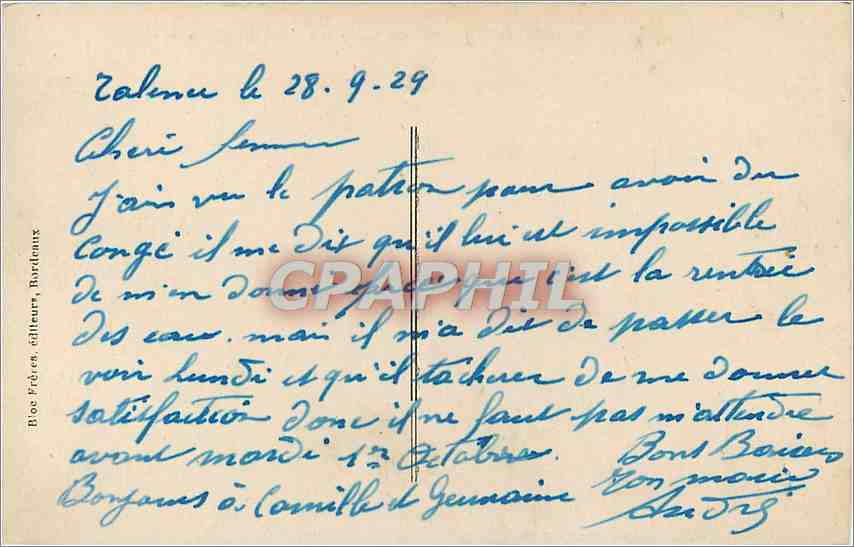 Talence le 28.9.29
Cheri femme
J'ais vu le patron pour avoir du
congé il me dit qu'il lui est impossible
de m'en donner parceque c'est la rentrée
des eau. mais il m'a dit de passer le
voir lundi et qu'il tachera de me donner
satisfaction donc il ne faut pas m'attendre
avant mardi 1er Octobre. Bons Baisers
Bonjours à Camille et Germaine Ton mari
André
Bloc Frères, éditeurs, Bordeaux
CPAPHIL